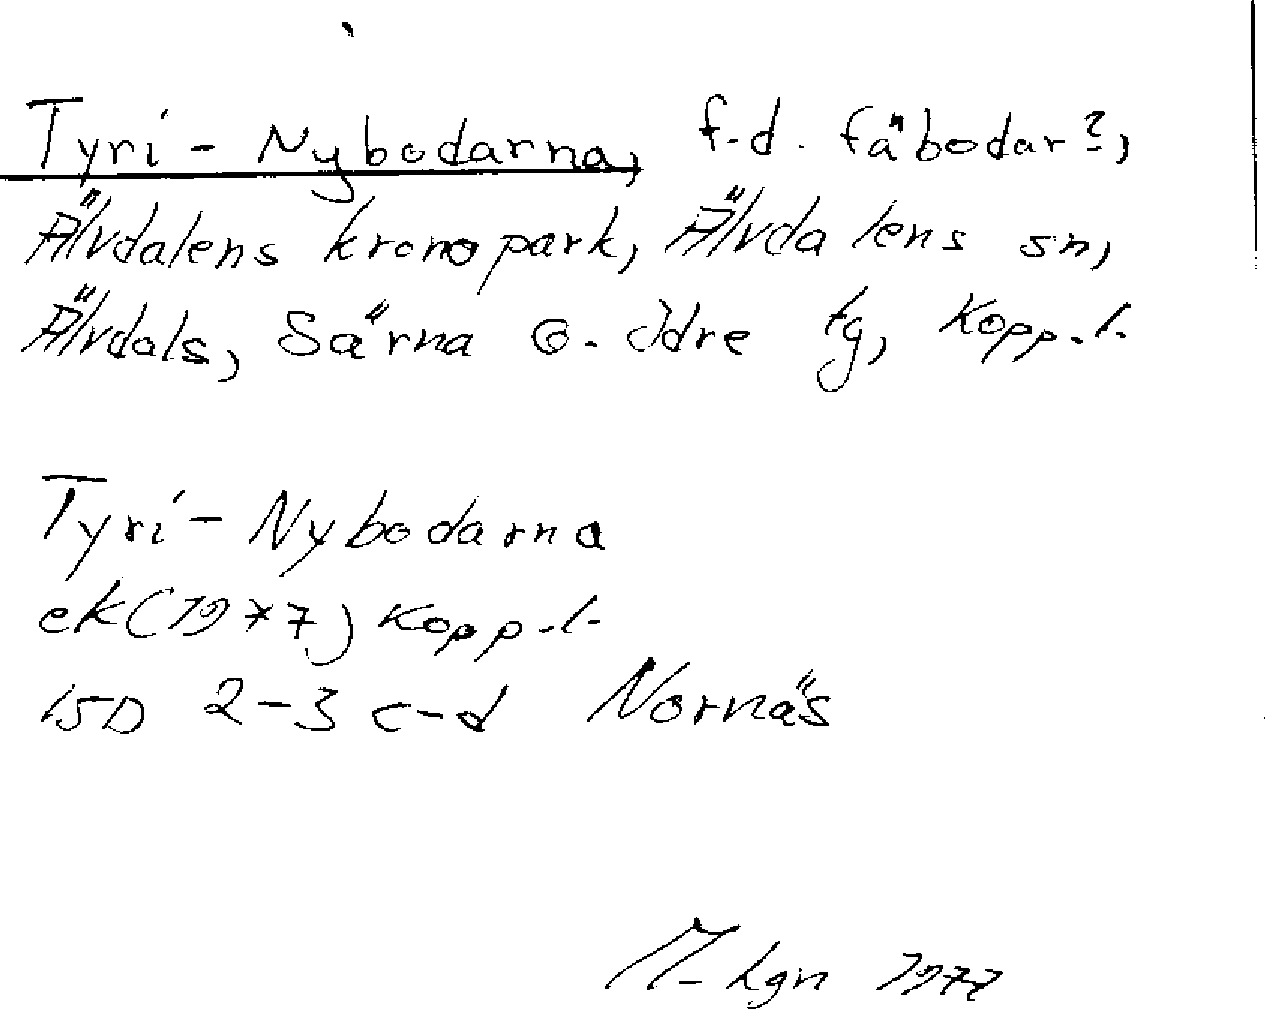 Tyri-Nybodarna, f.d. fäbodar?,
Älvdalens kronopark, Älvdalens sn,
Älvdals, Särna o. Idre tg, Kopp.l.
Tyri-Nybodarna
ek (1977) Kopp.l.
15D 2-3 c-d Nornäs
1977